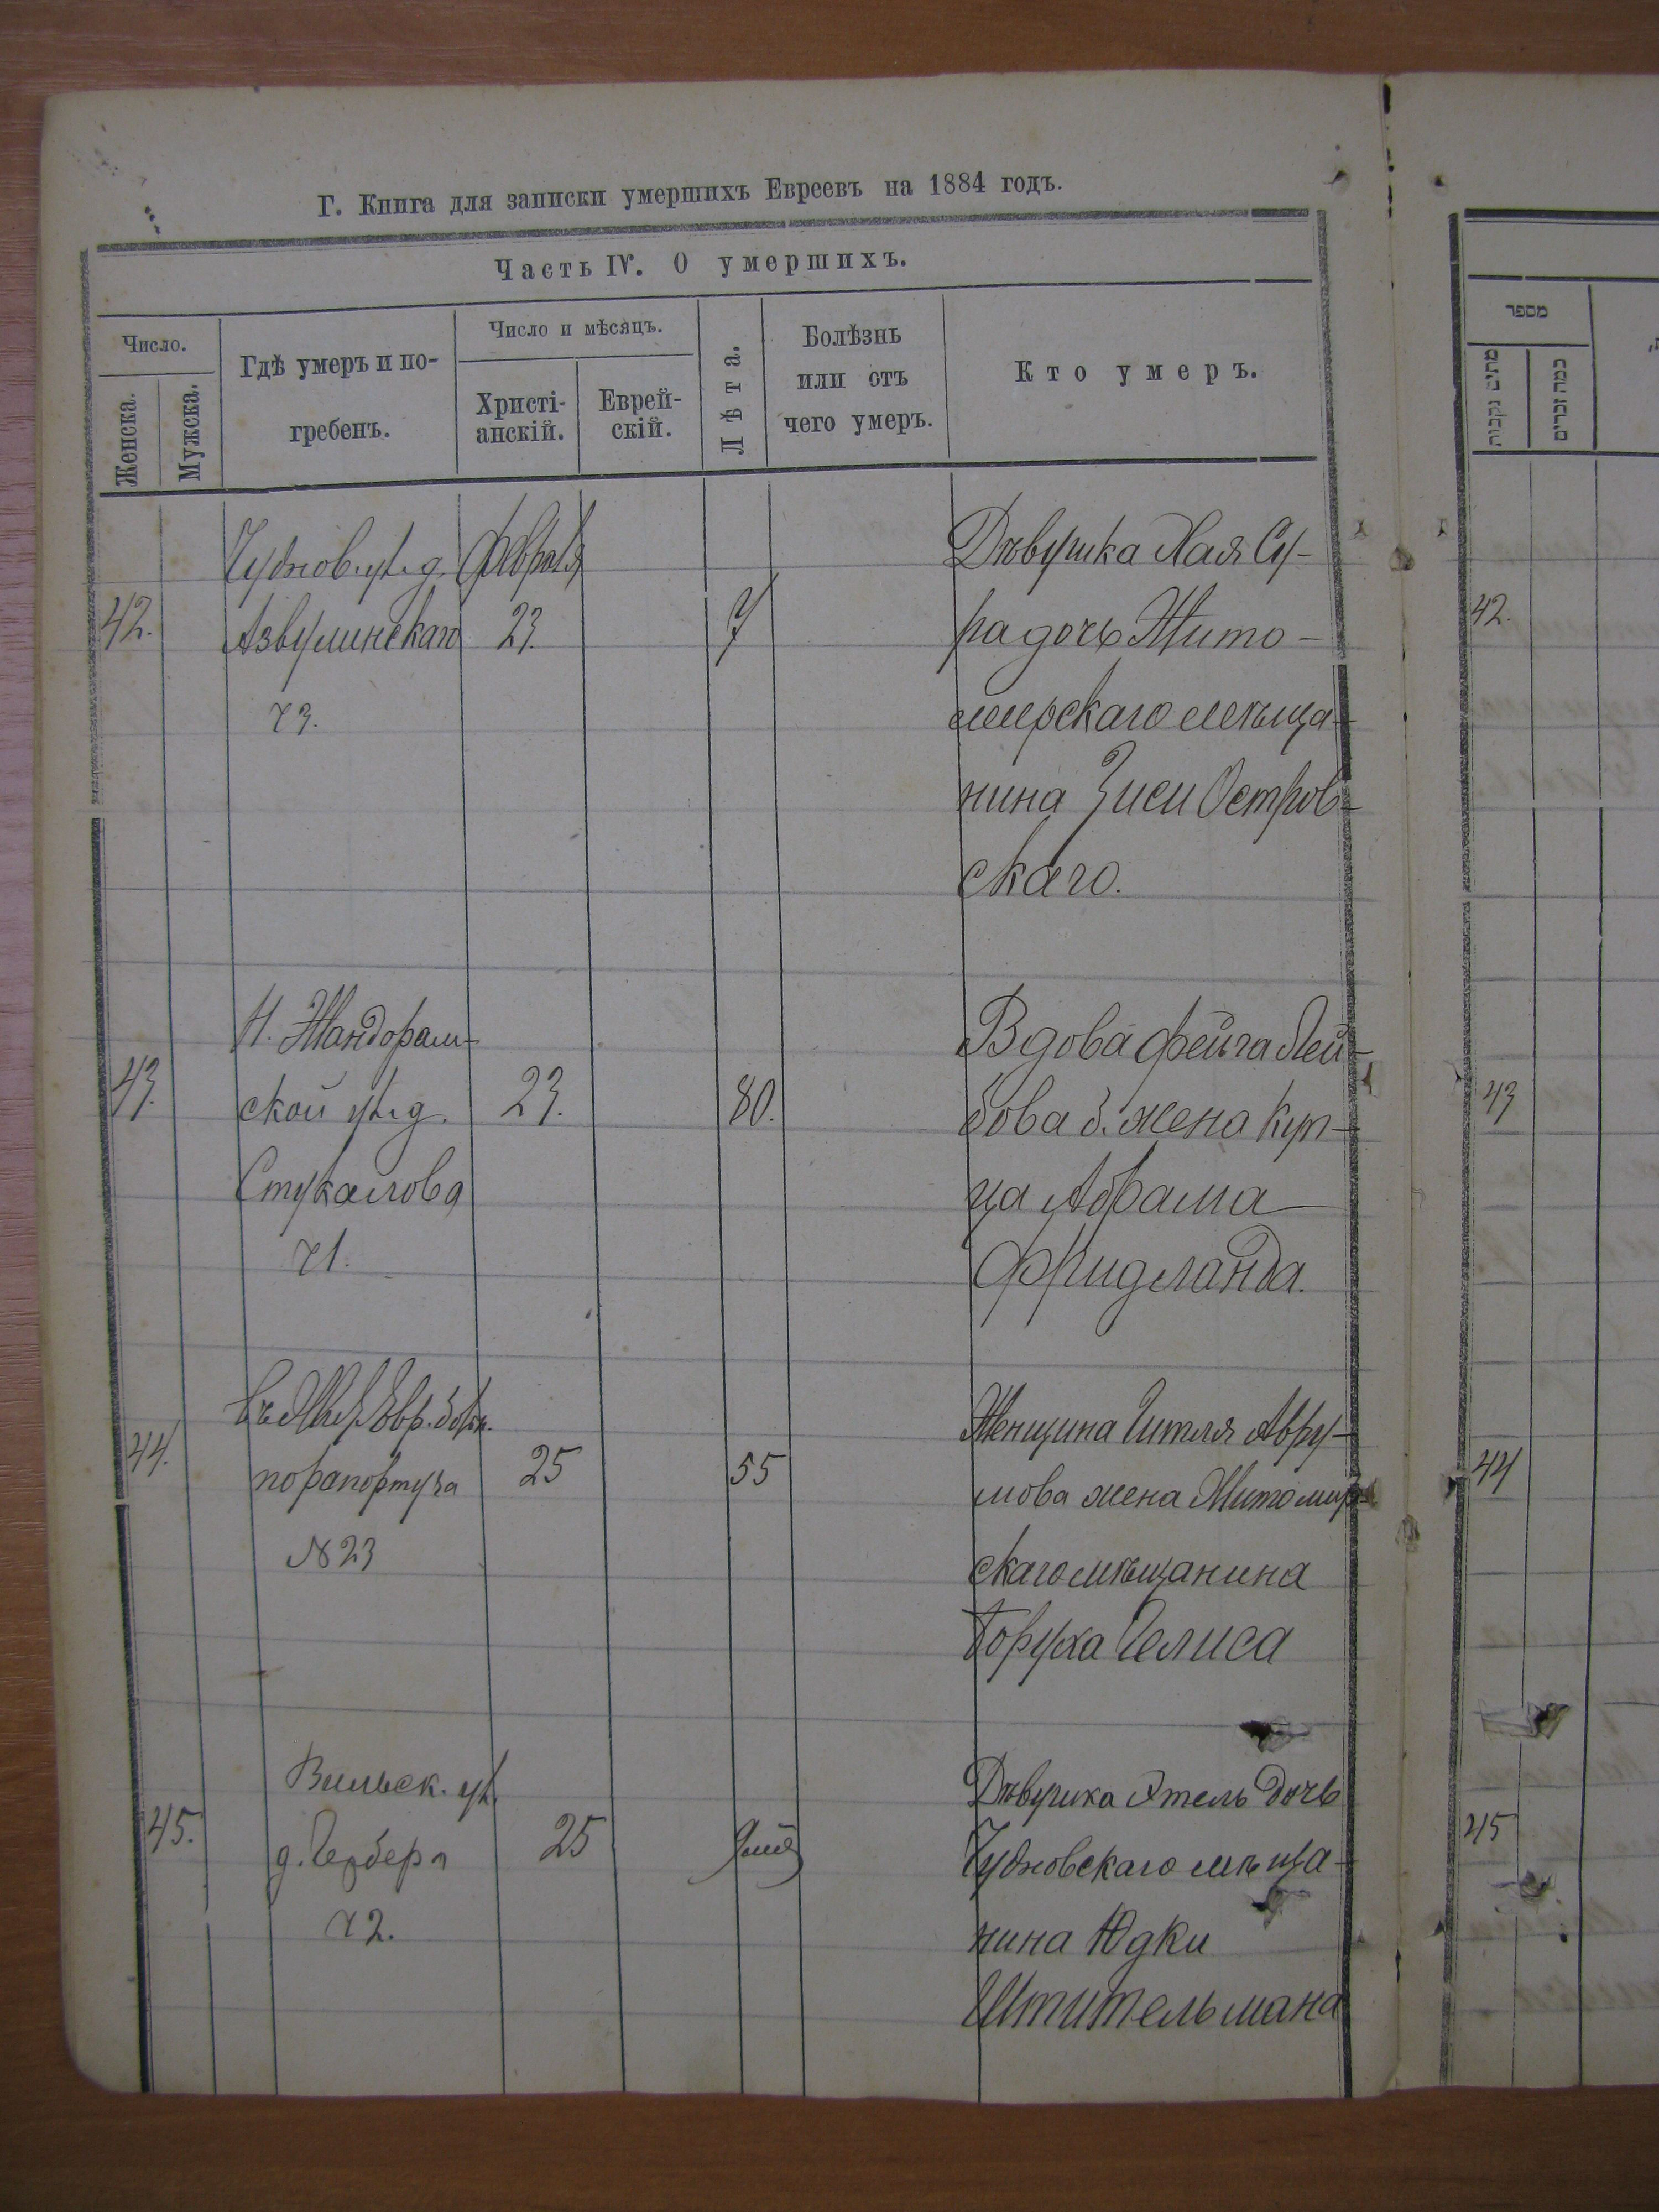 Г. Книга для записки умершихъ Евреевъ на 1884 годъ.
Часть IV. О умершихъ.
Число.
Женска.
Мужска.
Гдѣ умеръ и по-
гребенъ.
Число и мѣсяцъ.
Христі-
анскій.
Еврей-
скій.
Лѣта.
Болѣзнь
или отъ
чего умеръ.
Кто умеръ.
מספר
מתים נקבות
כמה זכרים
42.
Чуднов. ул. д.
Азвулинскаго
ч 3.
Февраля
23.
7
Дѣвушка Хая Су-
ра дочь Жито-
мирскаго мѣща-
нина Зиси Остров-
скаго.
42.
43.
Н. Жандорам-
ской ул. д.
Стукалова
ч 1.
23.
80.
Вдова Фейга Лей-
бова б. жена Куп-
ца Абрама
Фридланда.
43
44.
Въ Жит. Евр. больн.
по рапорту за
№ 23
25
55
Женщина Гитля Авру-
мова жена Житомир-
скаго мѣщанина
Боруха Гелиса
44
45.
Вильск. ул.
д. Гербера
ч 2.
25
Дѣвушка Этель дочь
Чудновскаго мѣща-
нина Юдки
Штительмана
45